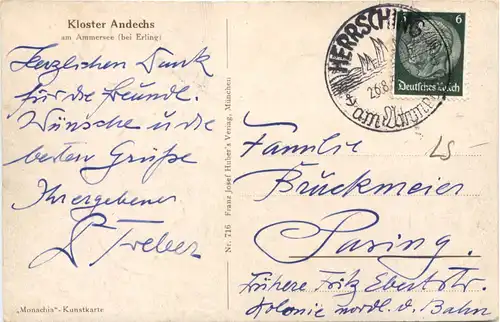 Kloster Andechs
am Ammersee (bei Erling)
Herzlichen Dank
für die freundl.
Wünsche u. die
besten Grüße
Ihr ergebener
Treber
"Monachia"-Kunstkarte
Nr. 716 Franz Josef Huber's Verlag, München
HERRSCHING
26.8.
am Ammersee
6
Deutsches Reich
15-
Familie
Bruckmeier
Pasing.
frühere Fritz Ebertstr.
Kolonie nördl. d. Bahn